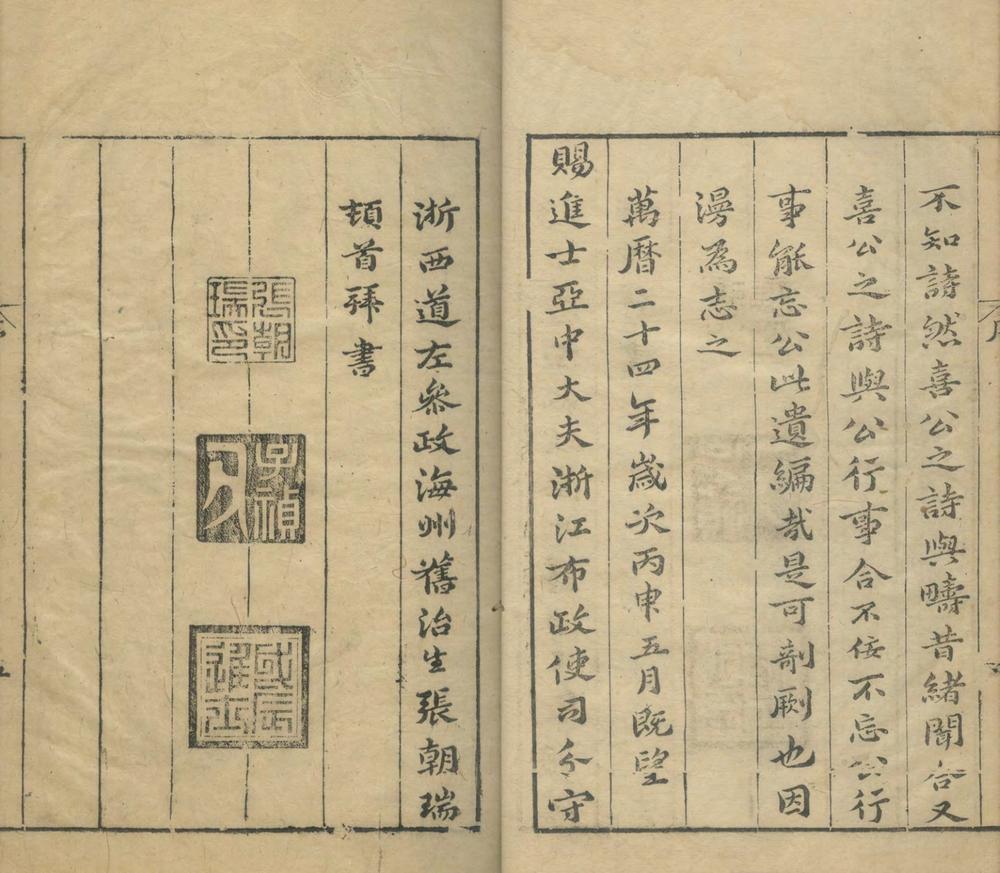 不知詩然喜公之詩與疇昔緒聞合又
喜公之詩與公行事合不佞不忘公行
事能忘公此遺編哉是可剞劂也因
漫為志之
萬曆二十四年歲次丙申五月既望
賜進士亞中大夫浙江布政使司分守
浙西道左參政海州舊治生張朝瑞
頓首拜書
張朝瑞印
子禎
戊辰進士